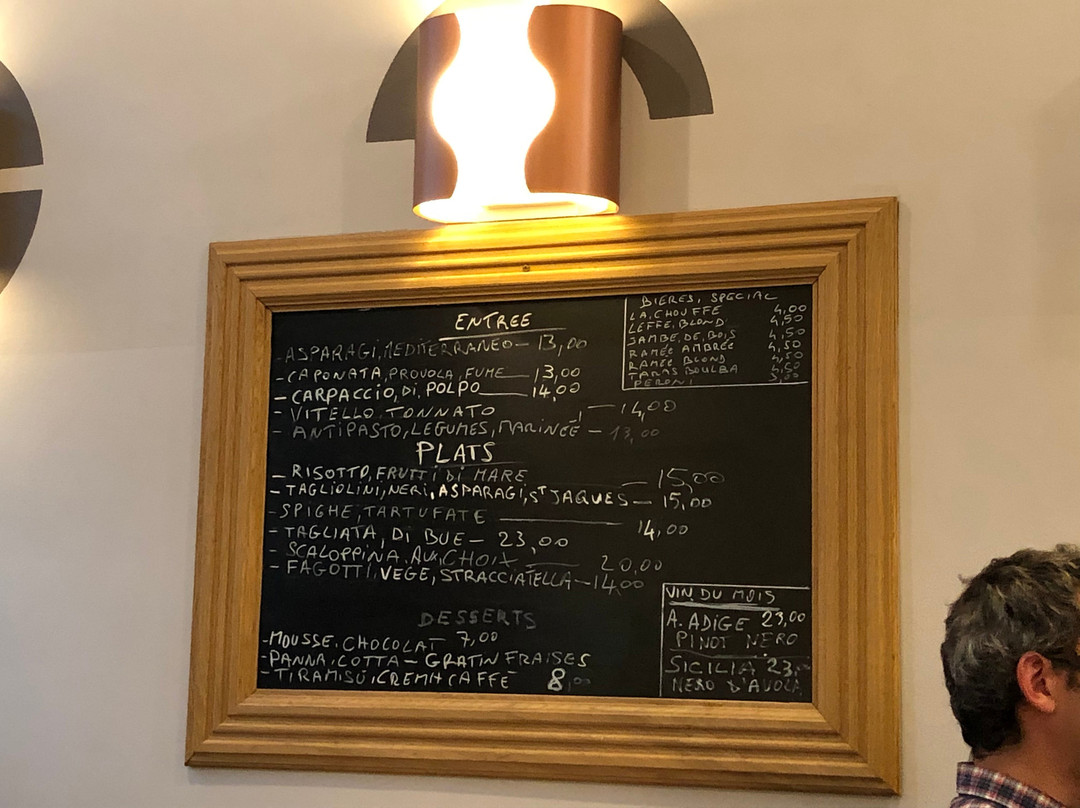 ENTREE
- ASPARAGI, MEDITERRANEO - 13,00
- CAPONATA, PROVOLA, FUME 13,00
- CARPACCIO, DI POLPO 14,00
- VITELLO TONNATO - 14,00
- ANTIPASTO, LEGUMES, MARINEÉ - 13,00
PLATS
- RISOTTO, FRUTTI DI MARE - 15,00
- TAGLIOLINI, NERI, ASPARAGI, ST JAQUES - 15,00
- SPIGHE, TARTUFATE 14,00
- TAGLIATA, DI BUE - 23,00
- SCALOPPINA. AU, CHOIX - 20,00
- FAGOTTI, VEGE, STRACCIATELLA - 14,00
DESSERTS
- MOUSSE, CHOCOLAT 7,00
- PANNA, COTTA - GRATIN FRAISES
- TIRAMISÙ, CREMA CAFFE 8,00
BIERES, SPECIAL
LA, CHOUFFE 4,00
LEFFE, BLOND 4,50
JAMBE, DE, BOIS 4,50
RAMÉE AMBRÉE 4,50
RAMÉE BLOND 4,50
TARAS BOULBA 4,50
PERONI 3,00
VIN DU MOIS
A. ADIGE 23,00
PINOT NERO
SICILIA 23,
NERO D'AVOLA